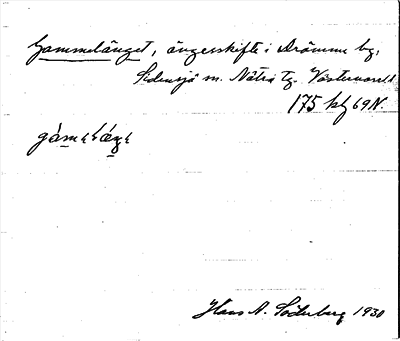 Gammelänget, ängesskifte i Drömme by,
Sidensjö sn. Nätra tg. Västernorrl.
175 69N.
Hans A. Söderberg 1930